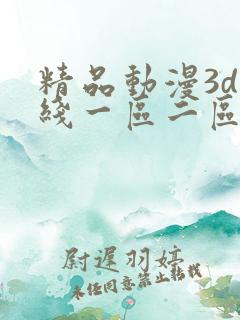 精品動漫3d
綫一區二區
尉遲羽婷
未经同意禁止转载